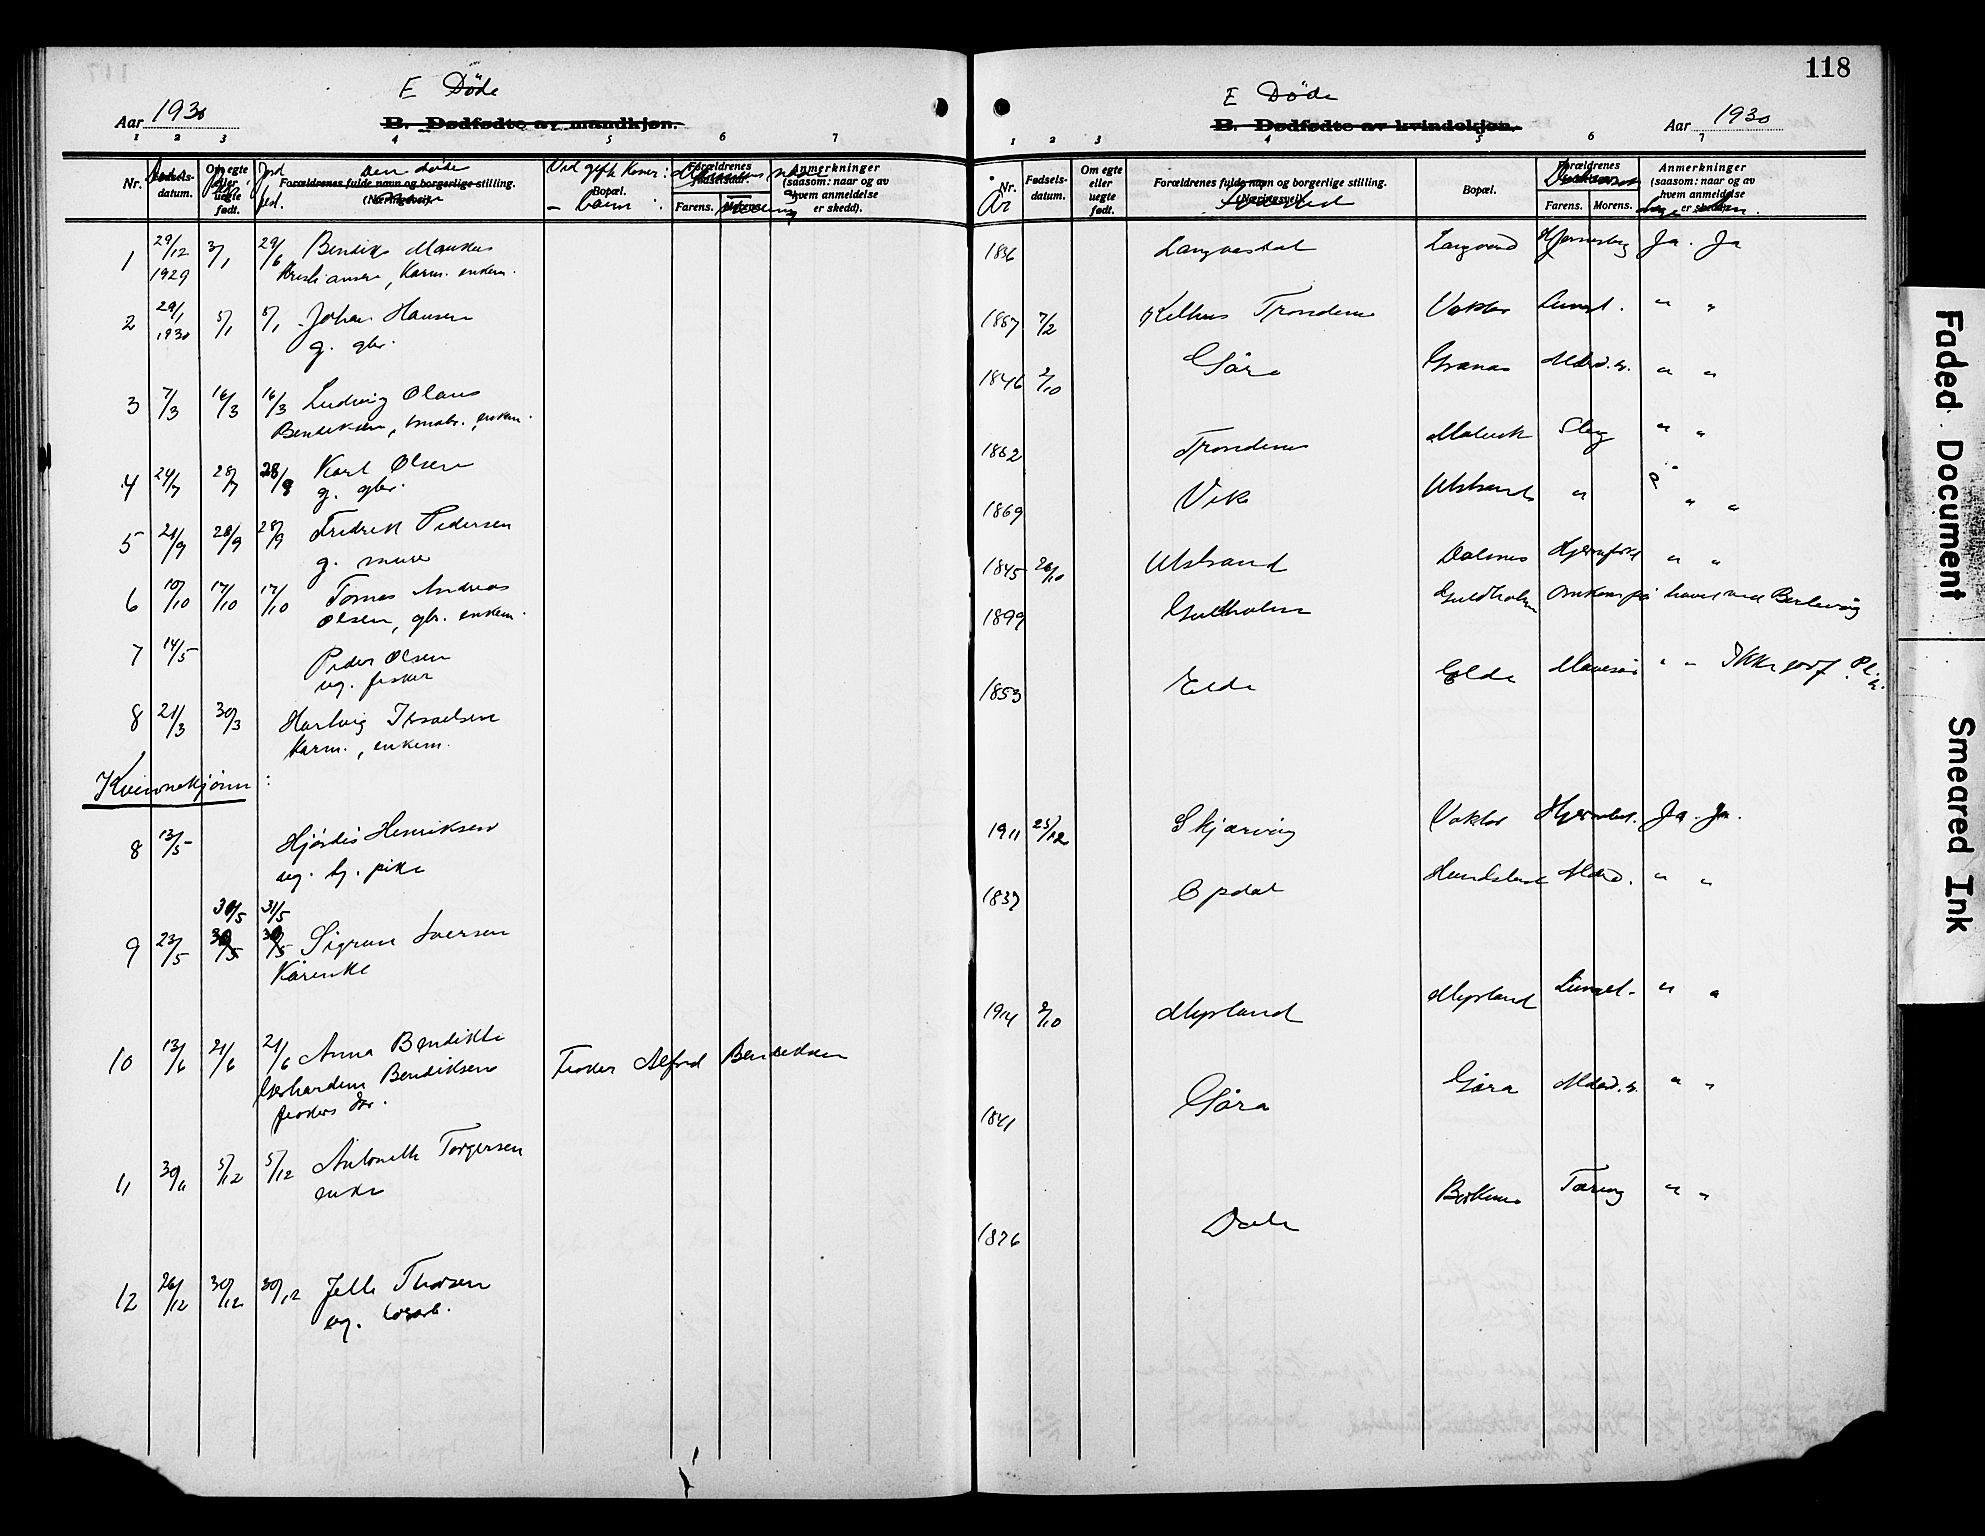 118
E Døde
Aar 1930
B. Dødfødte av mandkjøn.
1 2 3 4 5 6 7
Nr.
datum.
Om egte eller uegte født.
Jord
fest.
den døde
Forældrenes fulde navn og borgerlige stilling.
(Næringsvei).
Ved gifte Koner:
Bopæl.
– barn
Forældrenes
Farens. Morens.
Anmerkninger
(saasom: naar og av
hvem anmeldelse
er skedd).
1 29/12 1929 3/1 29/6 Bendik Markus
Kristiansen, Karm. enkem.
2 29/1 1930 5/1 5/1 Johan Hansen
g. gbr.
3 7/3 16/3 16/3 Ludvig Olaus
Bendiksen, enkem.
4 24/7 28/7 28/9 Karl Olsen
g. gbr.
5 21/9 28/9 28/9 Fredrik Pedersen
g. murer
6 10/10 17/10 17/10 Tomas Andreas
Olsen, gbr. enkem.
7 14/5 Peder Olsen
ug. fisker
8 21/3 30/3 Hartvig Israelsen
Karm., enkem.
Kvinnekjønn:
8 13/5 Hjørdis Henriksen
ug. tj. pike
30/5 31/5
9 23/5 30/5 30/5 Sigrun Iversen
Kårenke
10 13/6 21/6 21/6 Anna Bendikte
Gerhardine Bendiksen
fiskers dtr.
Fisker Alfred Bendiksen
11 30/11 5/12 5/12 Antonette Torgersen
enke
12 26/12 30/12 30/12 Jelle Thorsen
ug. losarb.
E Døde
Aar 1930
B. Dødfødte av kvindekjøn.
1 2 3 4 5 6 7
Nr.
År
Fødsels-
datum.
Om egte eller uegte født.
Forældrenes fulde navn og borgerlige stilling.
(Næringsvei).
Fødested
Bopæl.
Forældrenes
Dødsårsak
Farens. Morens.
Anmerkninger
(saasom: naar og av
hvem anmeldelse
er skedd).
1836 Langvasdal Langvand Ja. Ja
1867 7/2 Kelhus Trondenes Voktor Lungbet. " "
1846 2/10 Gåra Granas Alderd.sv. " "
1862 Trondenes Slag " "
1869 Vik Ulstrand " " "
1845 26/10 Ulstrand Dalsnes " "
1899 Guldholm Guldholm Omkom på havet ved Berlevåg
1853 Elde Elde " " Ikke jordf.
1911 25/12 Skjærvøy Voktor Ja. Ja.
1837 Opdal Hundstad Alderd. " "
1914 2/10 Myrland Myrland " "
1841 Gåra Gåra Alderd.sv. " "
1876 Dale Tæring " "
Faded Document
Smeared Ink